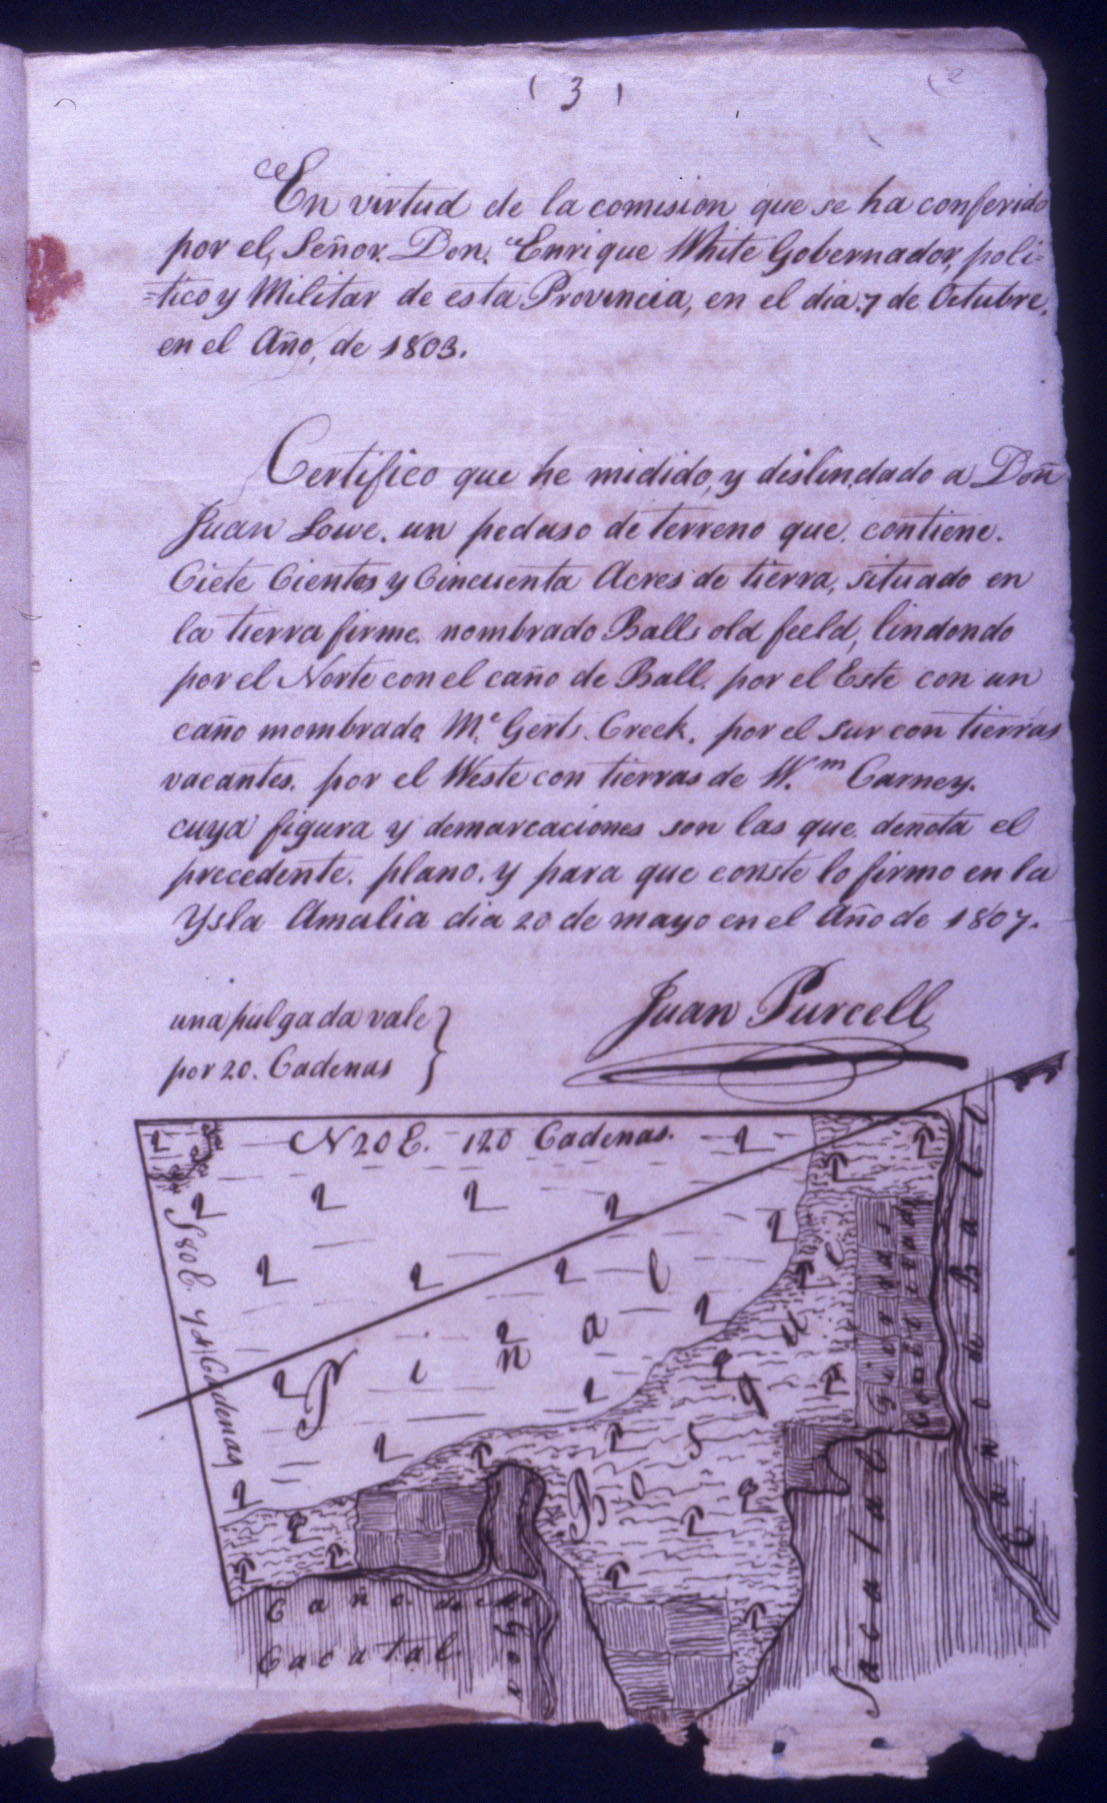 ( 3 )
En virtud de la comision que se ha conferido
por el, Señor. Don. Enrique White Gobernador, poli=
=tico y Militar de esta Provincia, en el dia. 7 de Octubre.
en el Año, de 1803.
Certifico que he midido, y dislindado a Don
Juan Lowe. un pedaso de terreno que. contiene.
Ciete Cientos y Cincuenta Acres de tierra, situado en
la tierra firme. nombrado Balls old feeld, lindondo
por el Norte con el caño de Ball. por el Este con un
caño mombrado. Mc. Gerts. Creek. por el sur con tierras
vacantes. por el Weste con tierras de Wm. Carney.
cuya figura y demarcaciones son las que. denota el
precedente. plano. y para que conste lo firmo en la
Ysla Amalia dia 20 de mayo en el Año de 1807.
una pulgada vale
por 20. Cadenas
Juan Purcell
N 20 E. 120 Cadenas.
S 80 E. Cadenas
Pinal
Bosque
Caño de Ball
Sacatal
Caño
Cacatal.